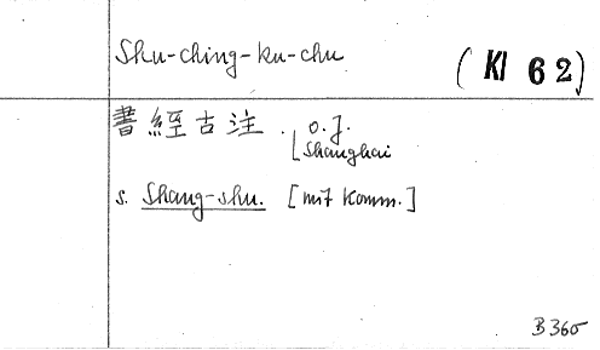 Shu-ching-ku-chu
(KI 62)
書經古注. o.J.
[Shanghai
s. Shang-shu. [mit Komm.]
B 365